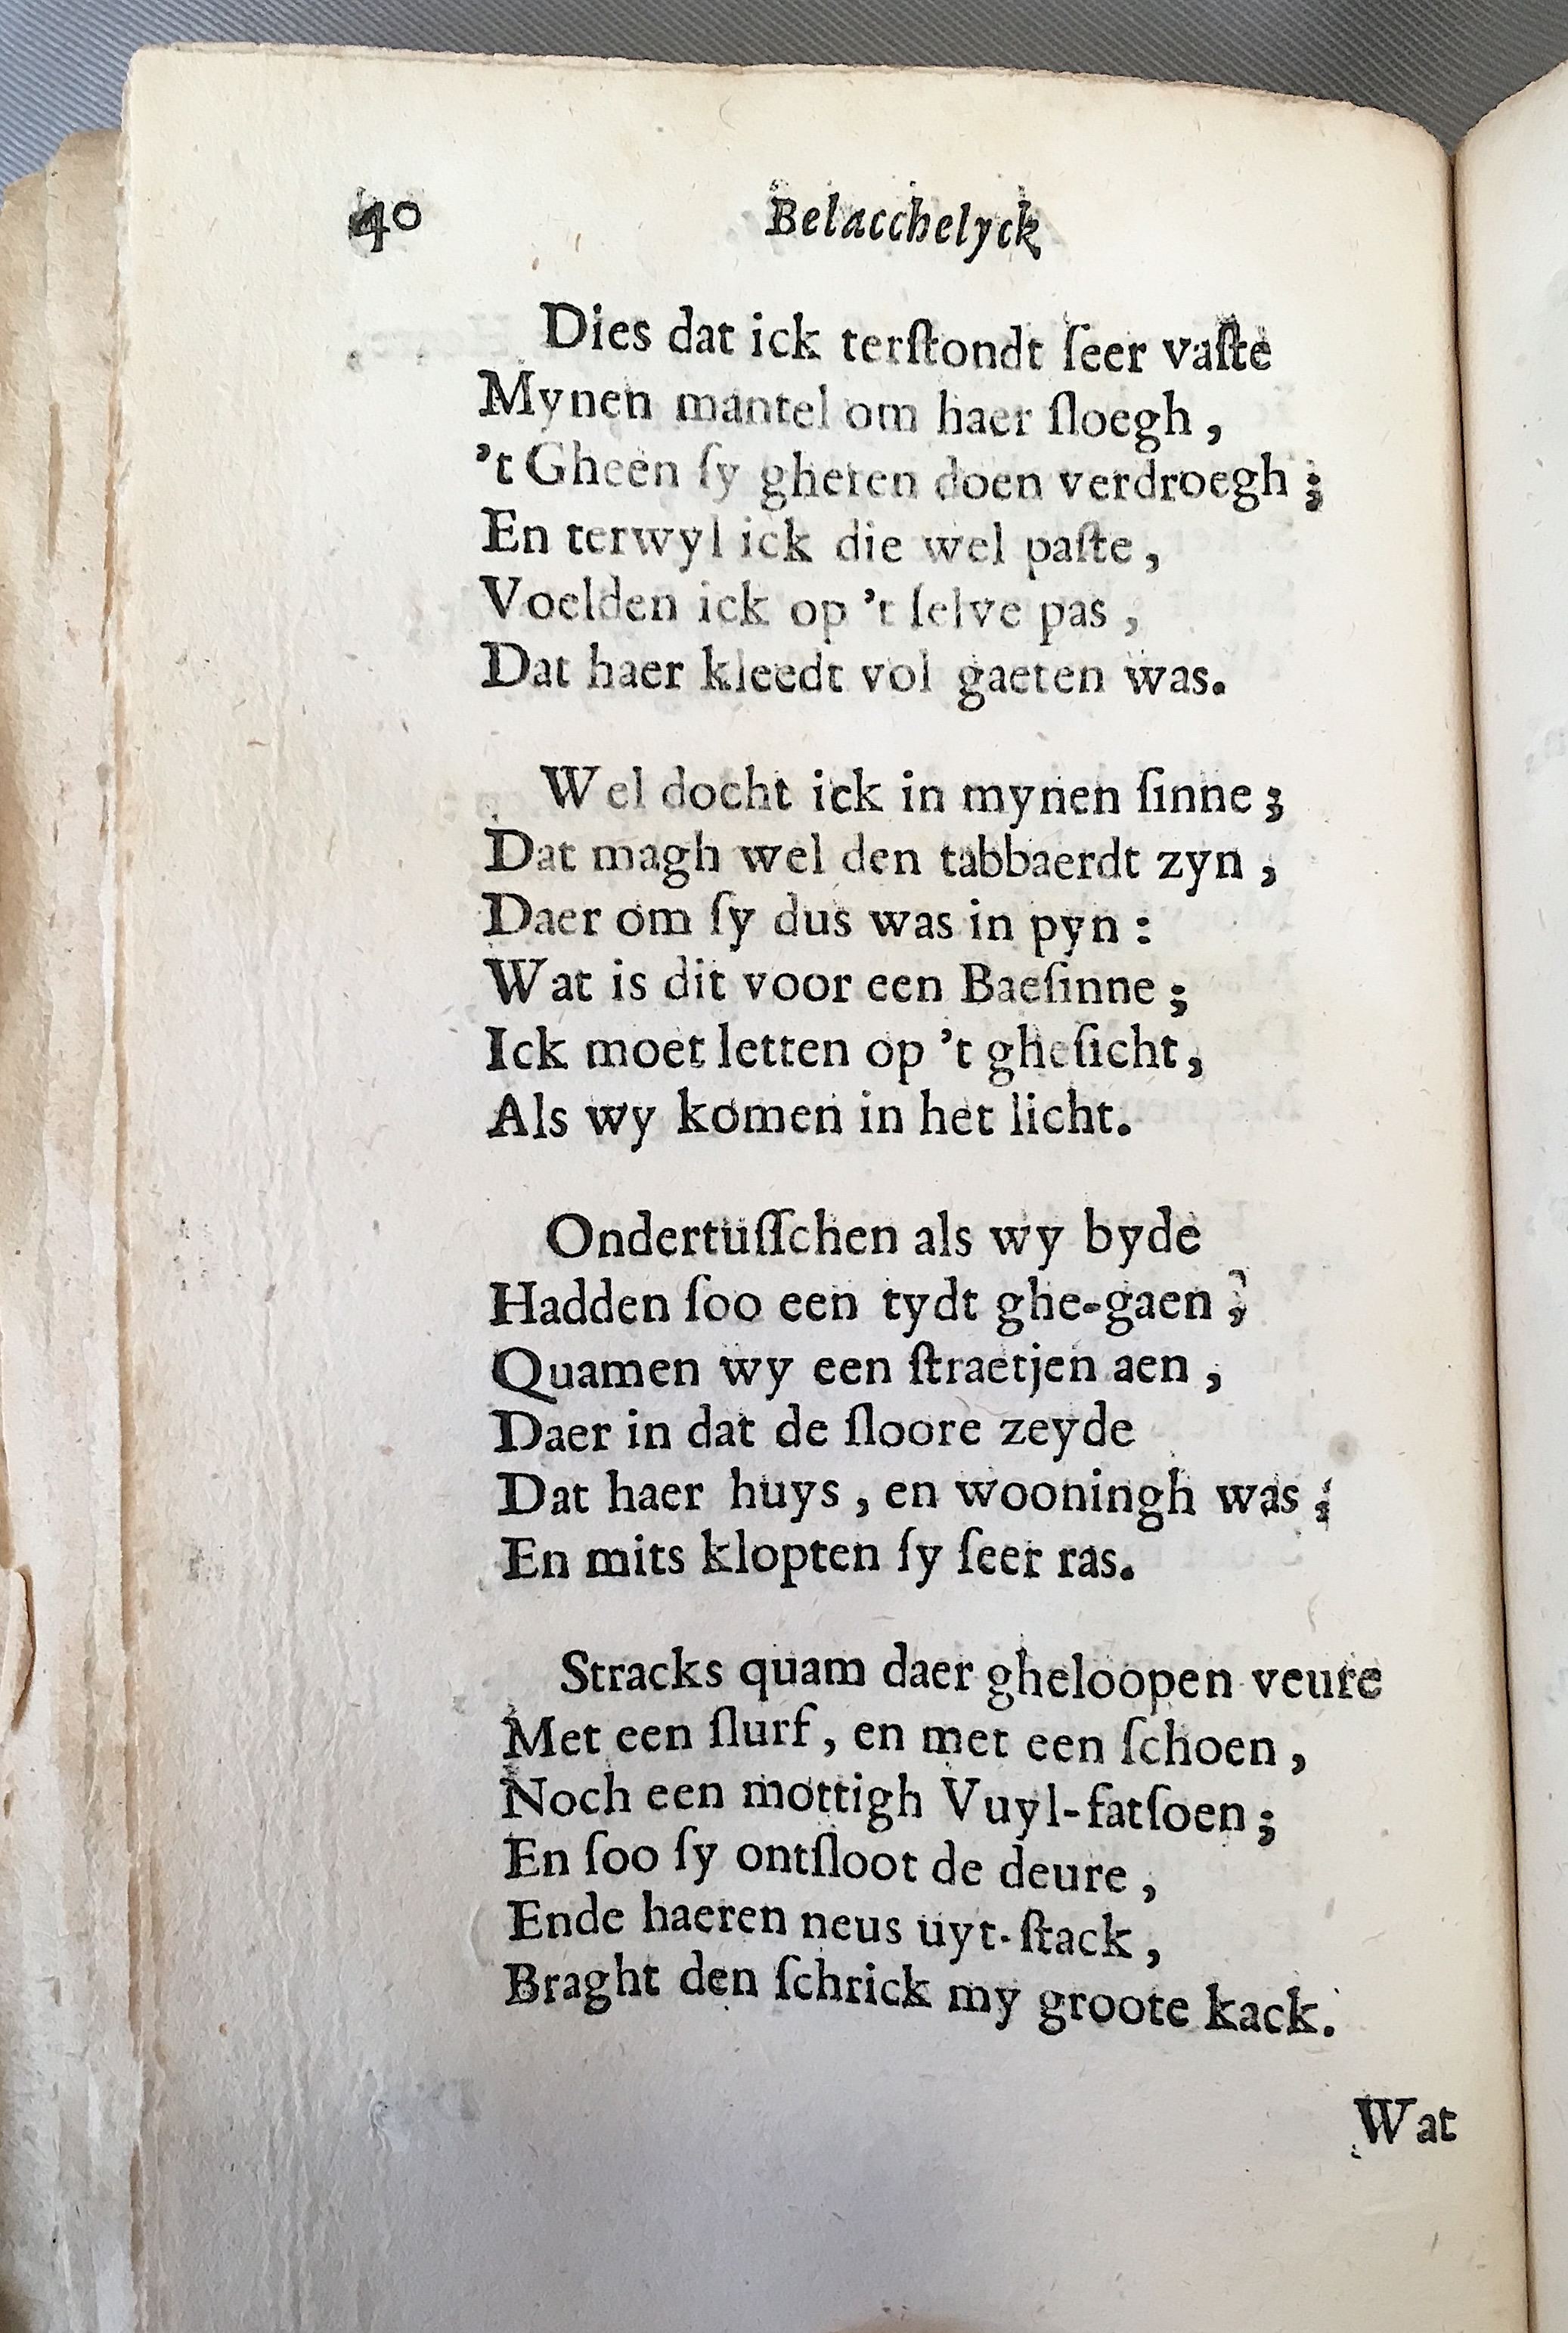 40 Belacchelyck
Dies dat ick terſtondt ſeer vaſte
Mynen mantel om haer ſloegh ,
't Gheen ſy gheren doen verdroegh ;
En terwyl ick die wel paſte ,
Voelden ick op 't ſelve pas ,
Dat haer kleedt vol gaeten was.
Wel docht ick in mynen ſinne ;
Dat magh wel den tabbaerdt zyn ,
Daer om ſy dus was in pyn :
Wat is dit voor een Baeſinne ;
Ick moet letten op 't gheſicht ,
Als wy komen in het licht.
Ondertuſſchen als wy byde
Hadden ſoo een tydt ghe-gaen ,
Quamen wy een ſtraetjen aen ,
Daer in dat de ſloore zeyde
Dat haer huys , en wooningh was ;
En mits klopten ſy ſeer ras.
Stracks quam daer gheloopen veure
Met een ſlurf , en met een ſchoen ,
Noch een mottigh Vuyl-fatſoen ;
En ſoo ſy ontſloot de deure ,
Ende haeren neus uyt-ſtack ,
Braght den ſchrick my groote kack.
Wat